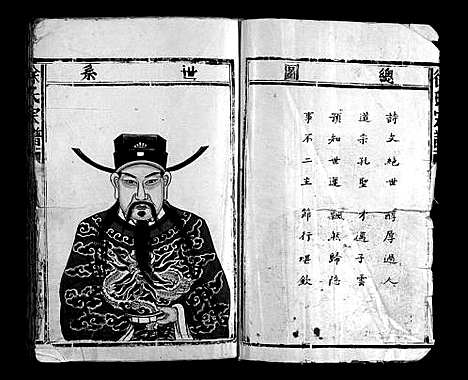 總圖
詩文絕世 醇厚過人
道宗孔聖 才邁子雲
預知世運 飄然歸隱
事不二主 節行堪欽
世系
徐氏宗譜